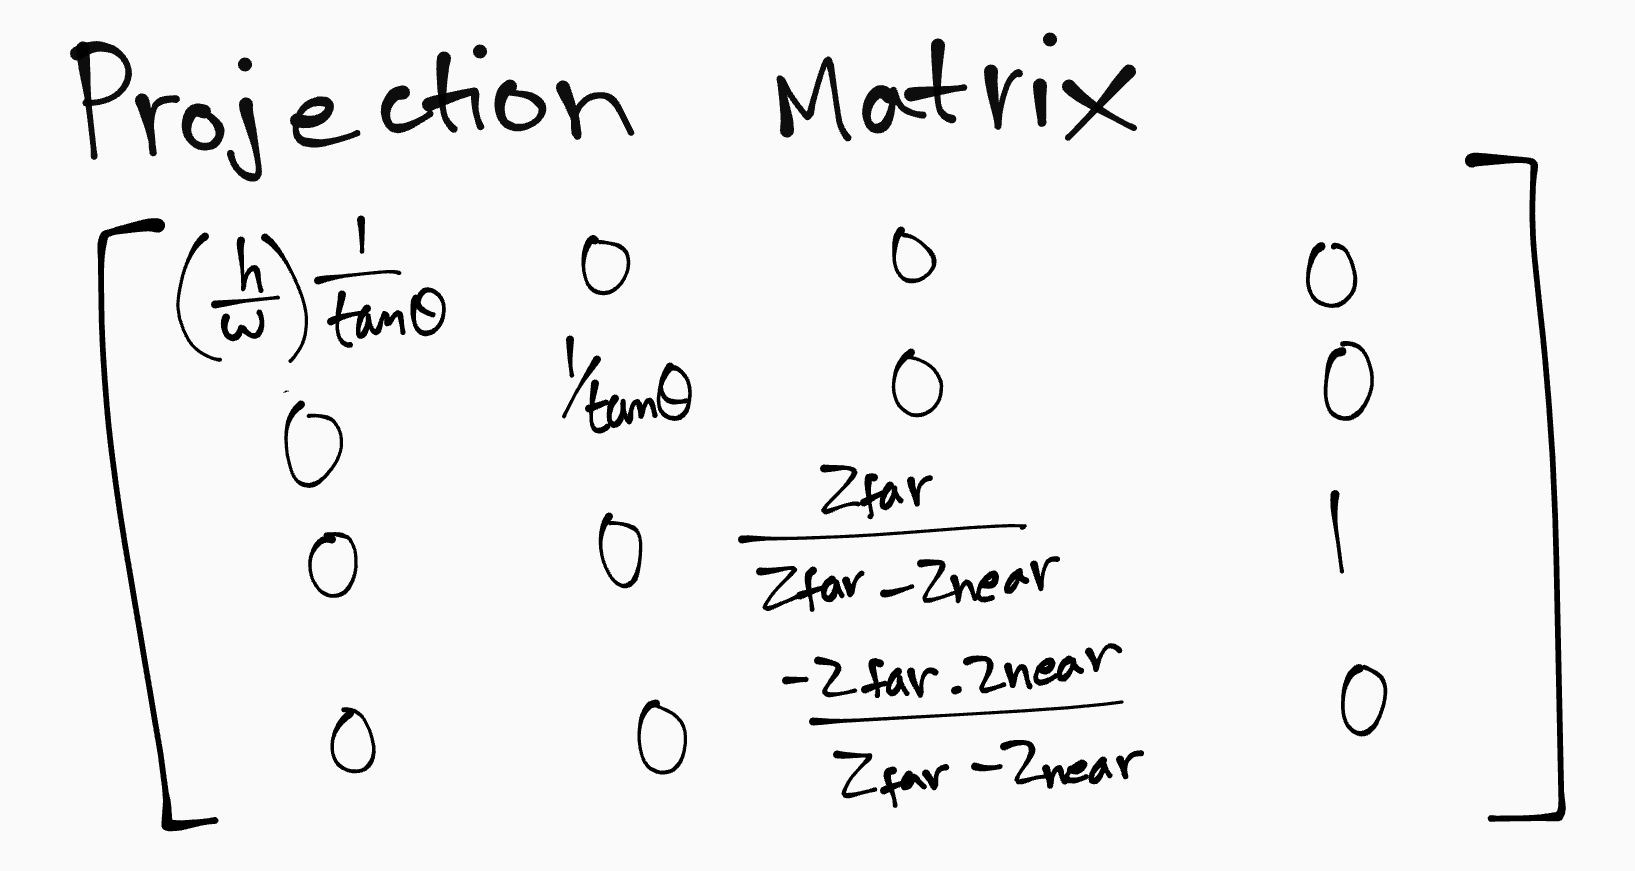 Projection Matrix
(h/w) 1/tanθ 0 0 0
0 1/tanθ 0 0
0 0 Zfar/(Zfar - Znear) 1
0 0 -Zfar.Znear/(Zfar - Znear) 0